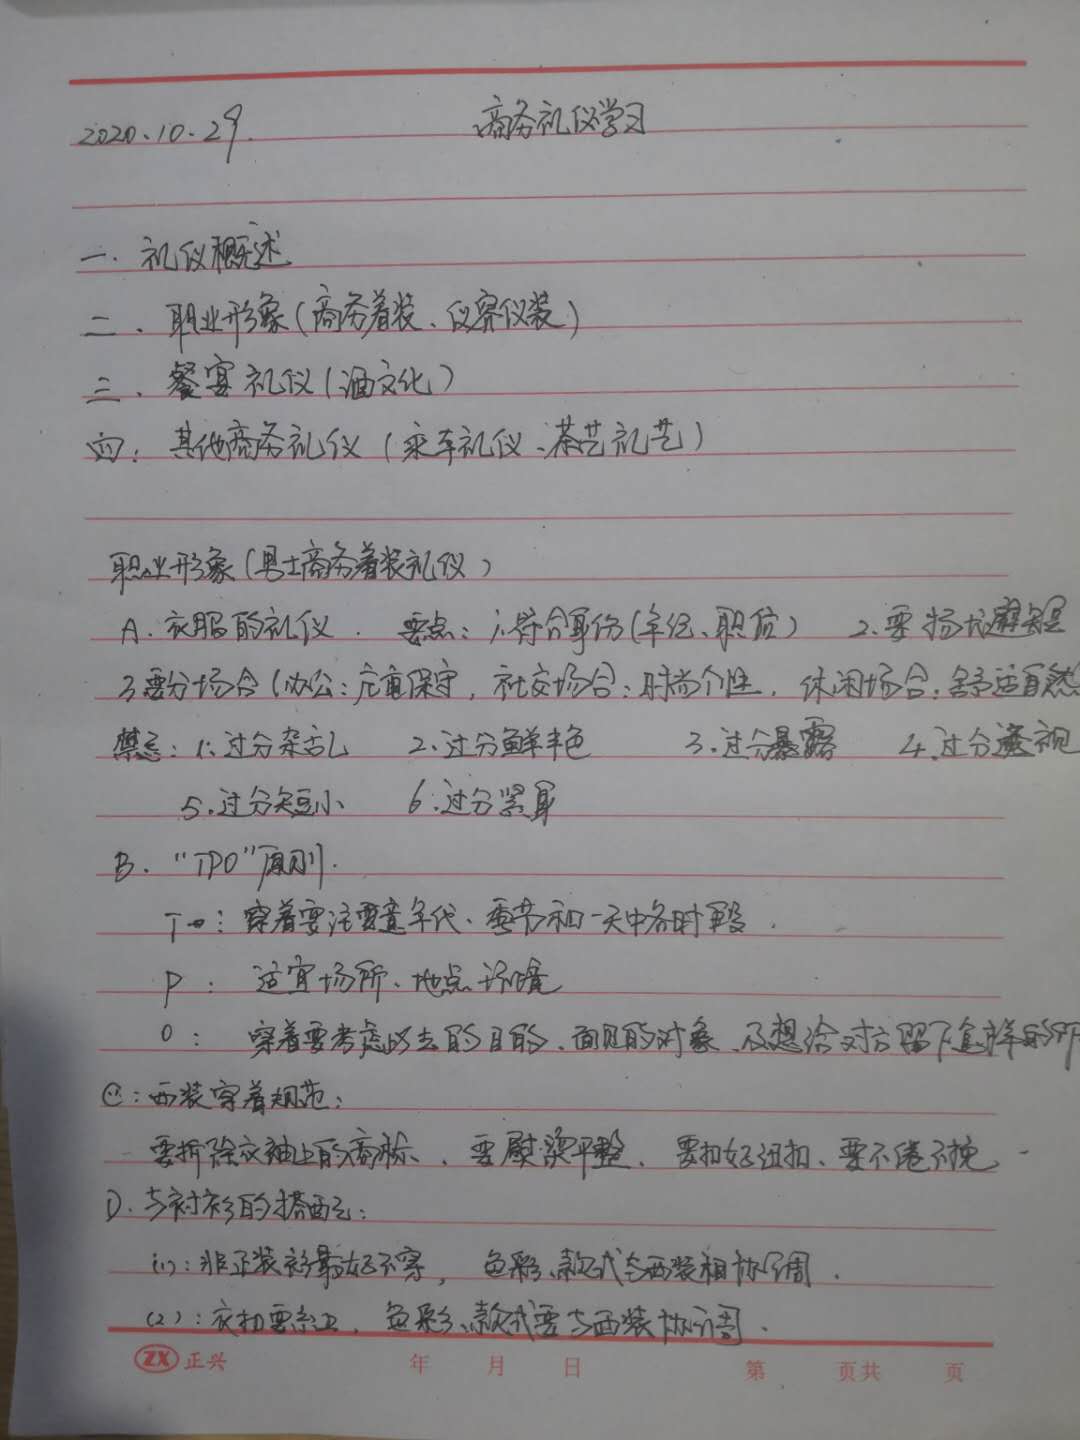 2020.10.29. 商务礼仪学习
一. 礼仪概述
二、职业形象(商务着装、仪容仪装)
三、餐宴礼仪(酒文化)
四: 其他商务礼仪(乘车礼仪、茶艺礼艺)
职业形象(男士商务着装礼仪)
A. 衣服的礼仪. 要点: 1.符合身份(年纪、职位) 2.要扬长避短
3要分场合(办公:庄重保守, 社交场合:时尚个性, 休闲场合:舒适自然
禁忌: 1:过分杂乱 2.过分鲜丰色 3.过分暴露 4.过分透视
5.过分短小 6.过分紧身
B. "TPO"原则.
T: 穿着要注意年代、季节和一天中各时段.
P: 适宜场所、地点环境
O: 穿着要考虑此去的目的、面见的对象、及想给对方留下怎样的印
C:西装穿着规范:
要拆除衣袖上的商标、要熨烫平整、要扣好纽扣、要不倦不挽
D. 与衬衫的搭配:
(1):非正装衫最好不穿, 色彩、款式与西装相协调.
(2):衣扣要系上, 色彩、款式要与西装协调.
ZX 正兴 年 月 日 第 页共 页